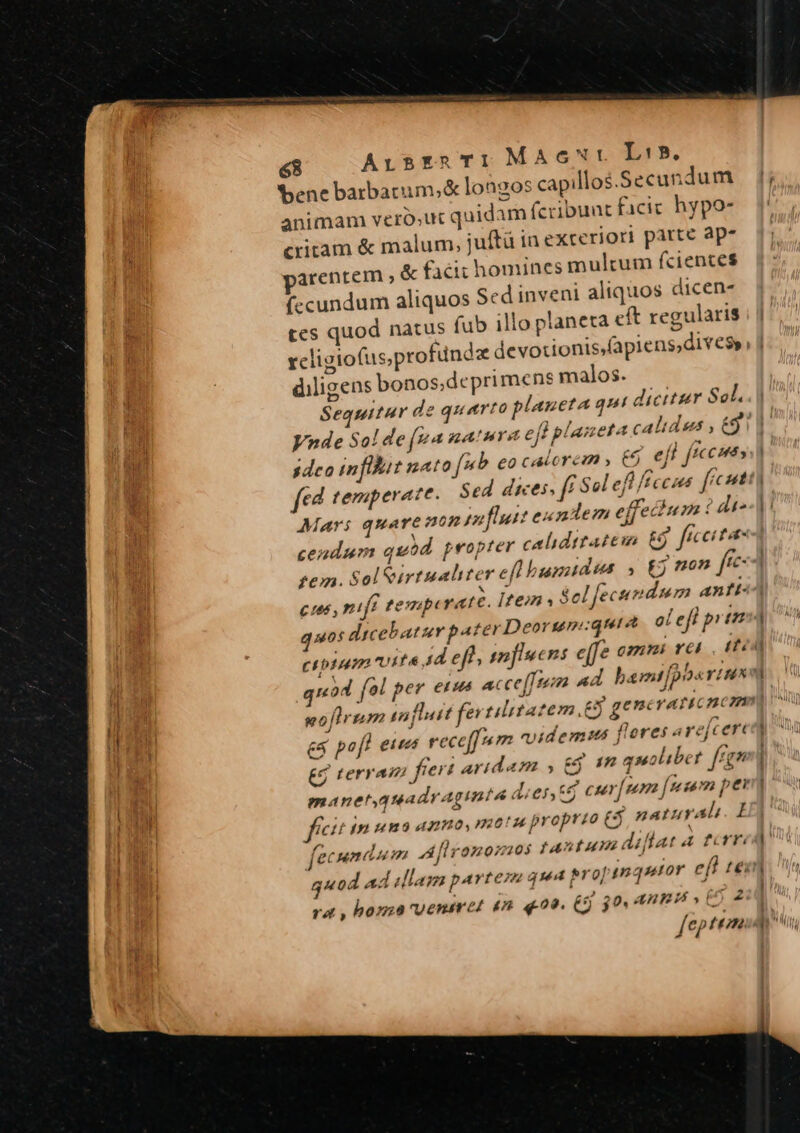 68 ALBERTI MAGNI LIB.
bene barbatum,& longos capillos.Secundum
animam verò,ut quidam ſcribunt facit hypo-
critam & malum, juſtũ in exteriori parte ap-
parentem , & facit homines multum ſcientes
ſecundum aliquos Sed inveni aliquos dicen-
tes quod natus ſub illo planeta eſt regularis
religioſus,profundæ devotionis,ſapiens,dives,
diligens bonos,deprimens malos.
Sequitur de quarto planeta qui dicitur Sol.
Vnde Sol de ſua natura eſt planeta calidus , &
ideo influit nato ſub eo calorem , & eſt ſiccus,
ſed temperate. Sed dices, ſi Sol eſt ſiccus ſicuti
Mars quare non influit eundem effectum ? di-
cendum quòd propter caliditatem & ſiccita-
tem. Sol virtualiter eſt humidus , & non ſic-
cus, niſi temperatè. Item , Sol ſecundum anti-
quos dicebatur pater Deorum:quia ol eſt prin-
cipium vitæ id eſt, influens eſſe omni rei . ite
quòd ſol per eius acceſſum ad hemiſphærium
noſtrum influit fertilitatem,& generationem
& poſt eius receſſum videmus flores areſcere
& terram fieri aridam , & in quolibet ſigno
manet,quadraginta dies,& curſum ſuum per-
ficit in uno anno, motu proprio & naturali. Et
ſecundum Aſtronomos tantum diſtat à terra
quod ad illam partem qua propinquior eſt ter-
ra, homo veniret in 400. & 30, annis , & 2
ſeptima